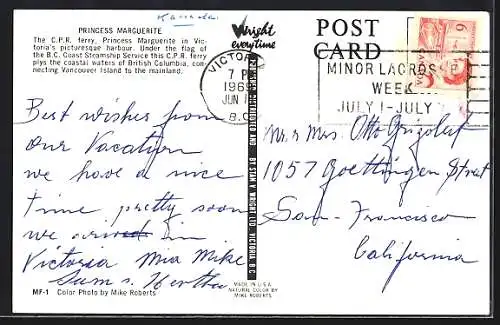 Kanada
PRINCESS MARGUERITE
The C.P.R. ferry, Princess Marguerite in Vic-
toria's picturesque harbour. Under the flag of
the B.C. Coast Steamship Service this C.P.R. ferry
plys the coastal waters of British Columbia, con-
necting Vancouver Island to the mainland.
Wright
everytime
POST
CARD
VICTORIA
7 PM
1969
JUN
B.C.
MINOR LACROSSE
WEEK
JULY 1-JULY 7
6
Best wishes from
our Vacation
we have a nice
time pretty soon
we in
Victoria Mia Mike
Sam s. Hertha
Mr & Mrs. Otto
1057 Goettingen Street
San-Francisco
California
AND BY STAN V. WRIGHT LTD. VICTORIA B.C.
MF-1 Color Photo by Mike Roberts
MADE IN U.S.A.
NATURAL COLOR BY
MIKE ROBERTS